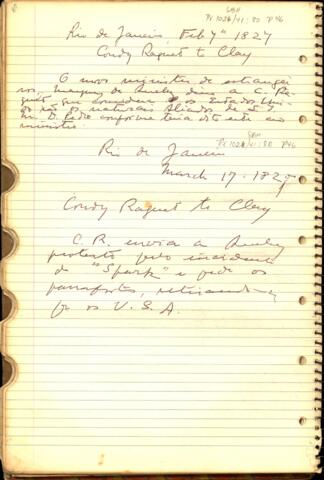 SBH
Pi 102a/41:80 P46
Rio de Janeiro, Feb 7th 1827
Condy Raguet to Clay
O novo ministro de estrangei
ros, Marquez de Queluz disse a C. Ra
guet que considera os Estados Uni
dos os naturaes Aliados de S. M.
D. Pedro conforme teria dito este ao
ministro.
SBH
Pi 102a/41:80 P46
Rio de Janeiro
March 17. 1827
Condy Raguet to Clay
C. R. envia a Queluz
protesto pelo incidente
do "Spark" e pede os
passaportes, retirando-se
p os U.S.A.